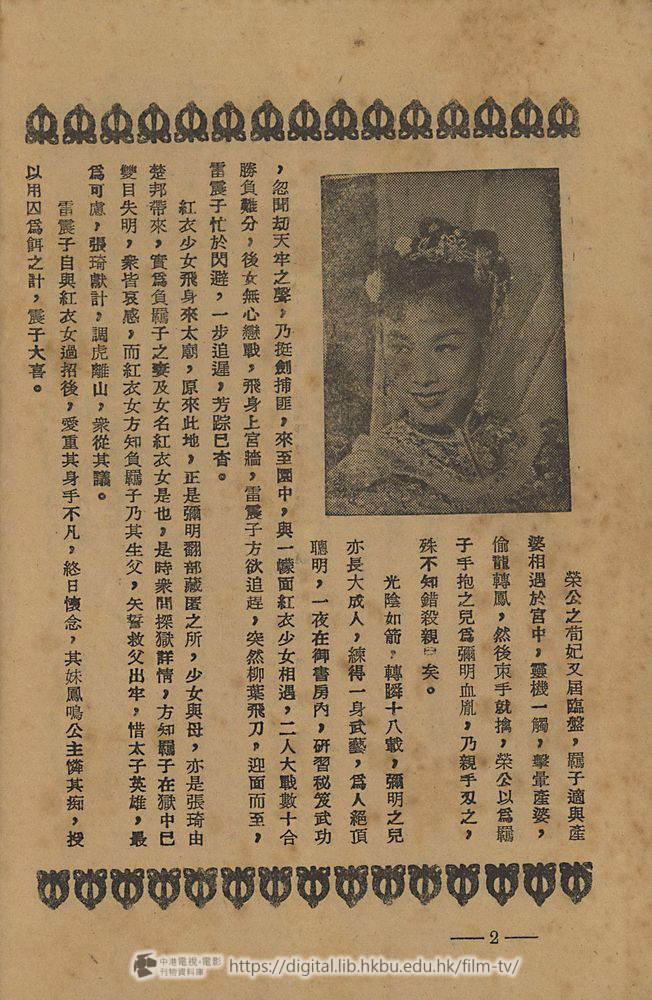 榮公之荀妃又屆臨盤，羈子適與產
婆相遇於宮中，靈機一觸，擊暈產婆，
偷龍轉鳳，然後束手就擒，榮公以爲羈
子手抱之兒爲彌明血胤，乃親手刃之，
殊不知錯殺親已矣。
光陰如箭，轉瞬十八載，彌明之兒
亦長大成人，練得一身武藝，爲人絕頂
聰明，一夜在御書房內，研習秘笈武功
，忽聞劫天牢之聲，乃挺劍捕匪，來至園中，與一幪面紅衣少女相遇，二人大戰數十合
勝負難分，後女無心戀戰，飛身上宮牆，雷震子方欲追趕，突然柳葉飛刀，迎面而至，
雷震子忙於閃避，一步追遲，芳踪已杳。
紅衣少女飛身來太廟，原來此地，正是彌明翻部藏匿之所，少女與母，亦是張琦由
楚邦帶來，實爲負羈子之妻及女名紅衣女是也，是時衆問探獄詳情，方知羈子在獄中已
雙目失明，衆皆哀感，而紅衣女方知負羈子乃其生父，矢誓救父出牢，惜太子英雄，最
爲可慮，張琦獻計，調虎離山，衆從其議。
雷震子自與紅衣女過招後，愛重其身手不凡，終日懷念，其妹鳳鳴公主憐其痴，授
以用囚爲餌之計，震子大喜。
— 2 —
中港電視·電影
刊物資料庫
https://digital.lib.hkbu.edu.hk/film-tv/